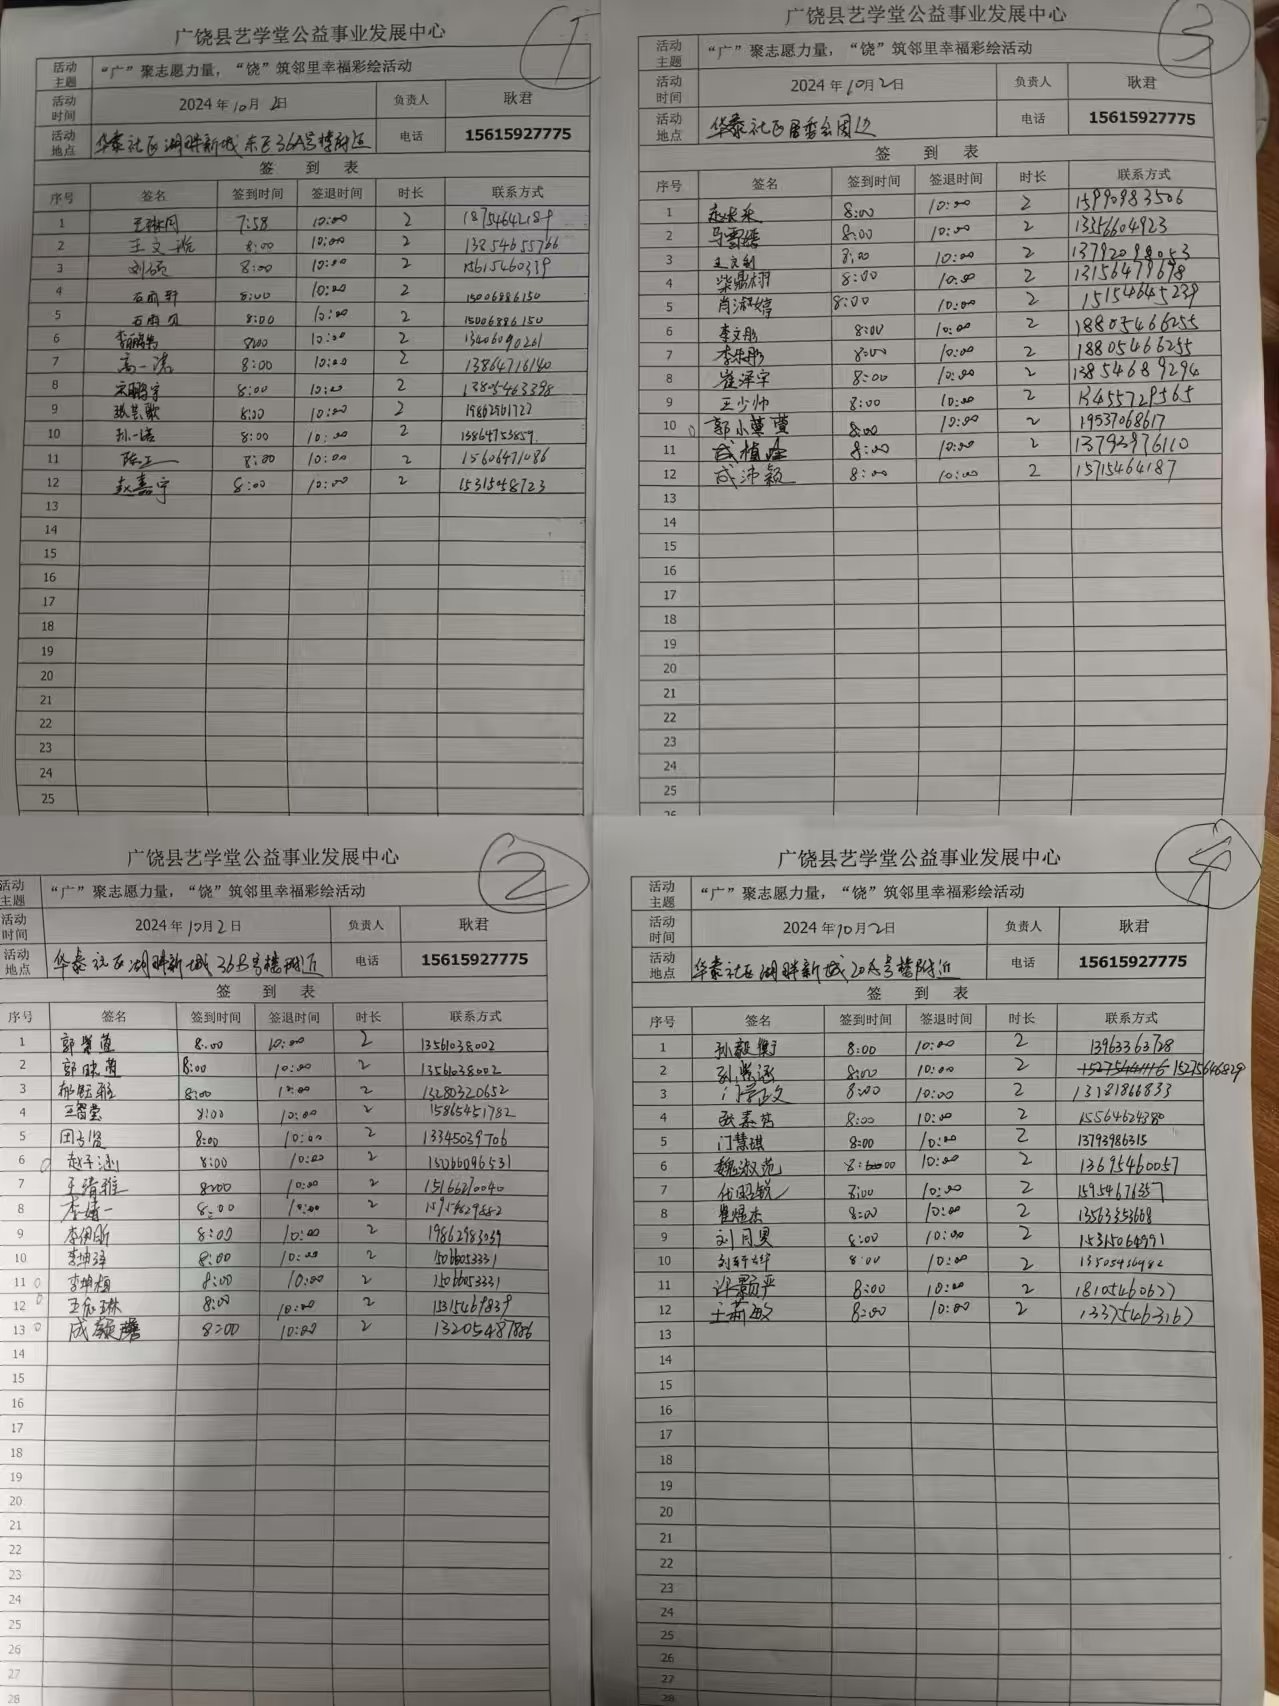 广饶县艺学堂公益事业发展中心
①
活动主题 “广”聚志愿力量，“饶”筑邻里幸福彩绘活动
活动时间 2024年10月2日 负责人 耿君
活动地点 华泰社区湖畔新城东区36A号楼附近 电话 15615927775
签 到 表
序号 签名 签到时间 签退时间 时长 联系方式
1 7:58 10:00 2 18754642189
2 王文 8:00 10:00 2 13854655766
3 刘硕 8:00 10:00 2 15615460339
4 石雨轩 8:00 10:00 2 15006886150
5 石雨贝 8:00 10:00 2 15006886150
6 8:00 10:00 2 13406090261
7 高一诺 8:00 10:00 2 13864716140
8 宋鹏宇 8:00 10:00 2 13805463398
9 张芸歌 8:00 10:00 2
10 孙一诺 8:00 10:00 2 13864753859
11 陈正一 8:00 10:00 2 15606471086
12 赵嘉宇 8:00 10:00 2 15315058723
13
14
15
16
17
18
19
20
21
22
23
24
25
广饶县艺学堂公益事业发展中心
③
活动主题 “广”聚志愿力量，“饶”筑邻里幸福彩绘活动
活动时间 2024年10月2日 负责人 耿君
活动地点 华泰社区居委会周边 电话 15615927775
签 到 表
序号 签名 签到时间 签退时间 时长 联系方式
1 8:00 10:00 2 15990983506
2 8:00 10:00 2 13356604923
3 王文利 8:00 10:00 2 13792098053
4 柴鼎栩 8:00 10:00 2 13156479698
5 肖淑婷 8:00 10:00 2 15154645239
6 李文彤 8:00 10:00 2 18805466255
7 李乐彤 8:00 10:00 2 18805466255
8 崔泽宇 8:00 10:00 2 13854689294
9 王少帅 8:00 10:00 2 13455729565
10 郭小萱 8:00 10:00 2 19537068617
11 8:00 10:00 2 13793976110
12 成沛颖 8:00 10:00 2 15715464187
13
14
15
16
17
18
19
20
21
22
23
24
25
26
广饶县艺学堂公益事业发展中心
②
活动主题 “广”聚志愿力量，“饶”筑邻里幸福彩绘活动
活动时间 2024年10月2日 负责人 耿君
活动地点 华泰社区湖畔新城36B号楼附近 电话 15615927775
签 到 表
序号 签名 签到时间 签退时间 时长 联系方式
1 郭紫萱 8:00 10:00 2 13561038002
2 郭晓萱 8:00 10:00 2 13561038002
3 郝钰雅 8:00 10:00 2 13280320652
4 8:00 10:00 2 15865451782
5 田子贤 8:00 10:00 2 13345039706
6 赵子涵 8:00 10:00 2 15066096531
7 王清雅 8:00 10:00 2 15166270040
8 李婧一 8:00 10:00 2 15954829882
9 李佣昕 8:00 10:00 2 19862983039
10 李坤泽 8:00 10:00 2 15066053331
11 李坤桓 8:00 10:00 2 15066053331
12 8:00 10:00 2 15315469839
13 8:00 10:00 2 13205487886
14
15
16
17
18
19
20
21
22
23
24
25
26
27
28
广饶县艺学堂公益事业发展中心
④
活动主题 “广”聚志愿力量，“饶”筑邻里幸福彩绘活动
活动时间 2024年10月2日 负责人 耿君
活动地点 华泰社区湖畔新城20A号楼附近 电话 15615927775
签 到 表
序号 签名 签到时间 签退时间 时长 联系方式
1 孙毅衡 8:00 10:00 2 13963363728
2 孙紫涵 8:00 10:00 2 15275646829
3 门学文 8:00 10:00 2 13181866833
4 8:00 10:00 2 15564624380
5 门慧琪 8:00 10:00 2 13793986315
6 魏淑范 8:00 10:00 2 13695460057
7 8:00 10:00 2 15954671357
8 崔煜杰 8:00 10:00 2 13563353668
9 刘月昊 8:00 10:00 2 15315064991
10 8:00 10:00 2 13505456982
11 许景严 8:00 10:00 2 18105460627
12 王莉敏 8:00 10:00 2 13375463167
13
14
15
16
17
18
19
20
21
22
23
24
25
26
27
28